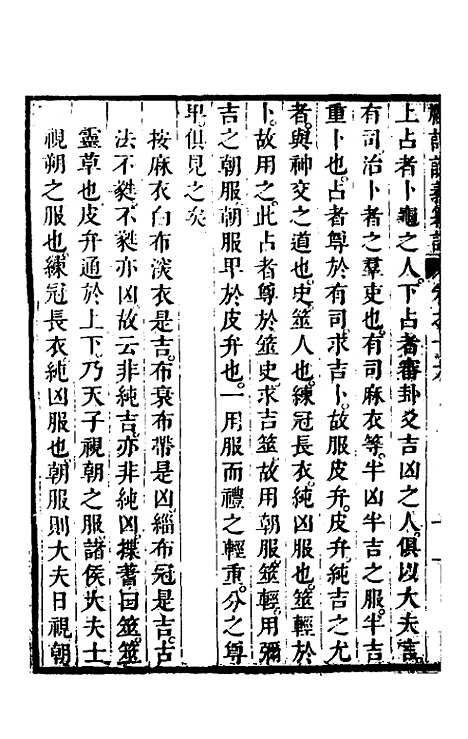 上占者卜龜之人下占者審卦爻吉凶之人俱以大夫言
有司治卜者之羣吏也有司麻衣等半凶半吉之服半吉
重卜也占者尊於有司求吉卜故服皮弁皮弁純吉之尤
者與神交之道也史筮人也練冠長衣純凶服也筮輕於
卜故用之此占者尊於筮史求吉筮故用朝服筮輕用彌
吉之朝服朝服甲於皮弁也一用服而禮之輕重分之尊
甲俱見之矣
按麻衣白布淡衣是吉布衰布帶是凶緇布冠是吉古
法不蕤不蕤亦凶故云非純吉亦非純凶揲蓍曰筮筮
靈草也皮弁通於上下乃天子視朝之服諸侯大夫士
視朔之服也練冠長衣純凶服也朝服則大夫日視朝